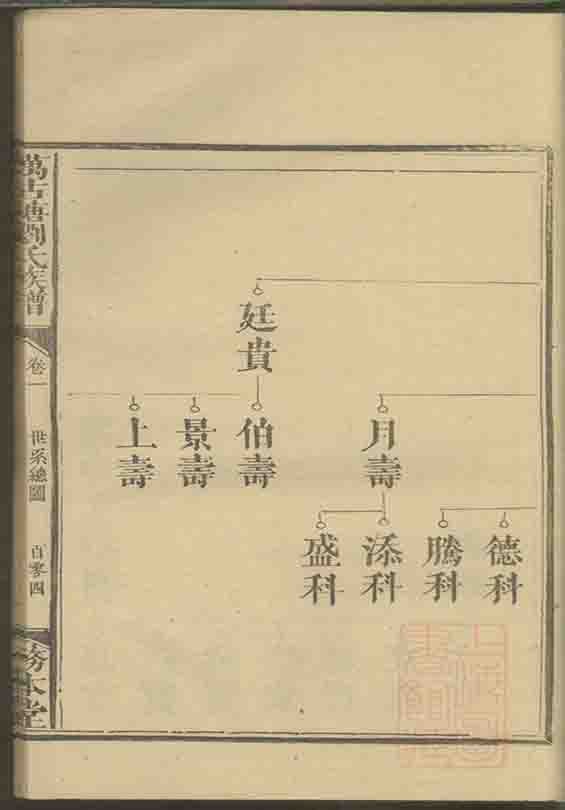 廷貴
月壽
伯壽
景壽
上壽
德科
騰科
添科
盛科
萬古塘劉氏族譜
卷一
世系總圖
百零四
務本堂
上海圖
書館藏